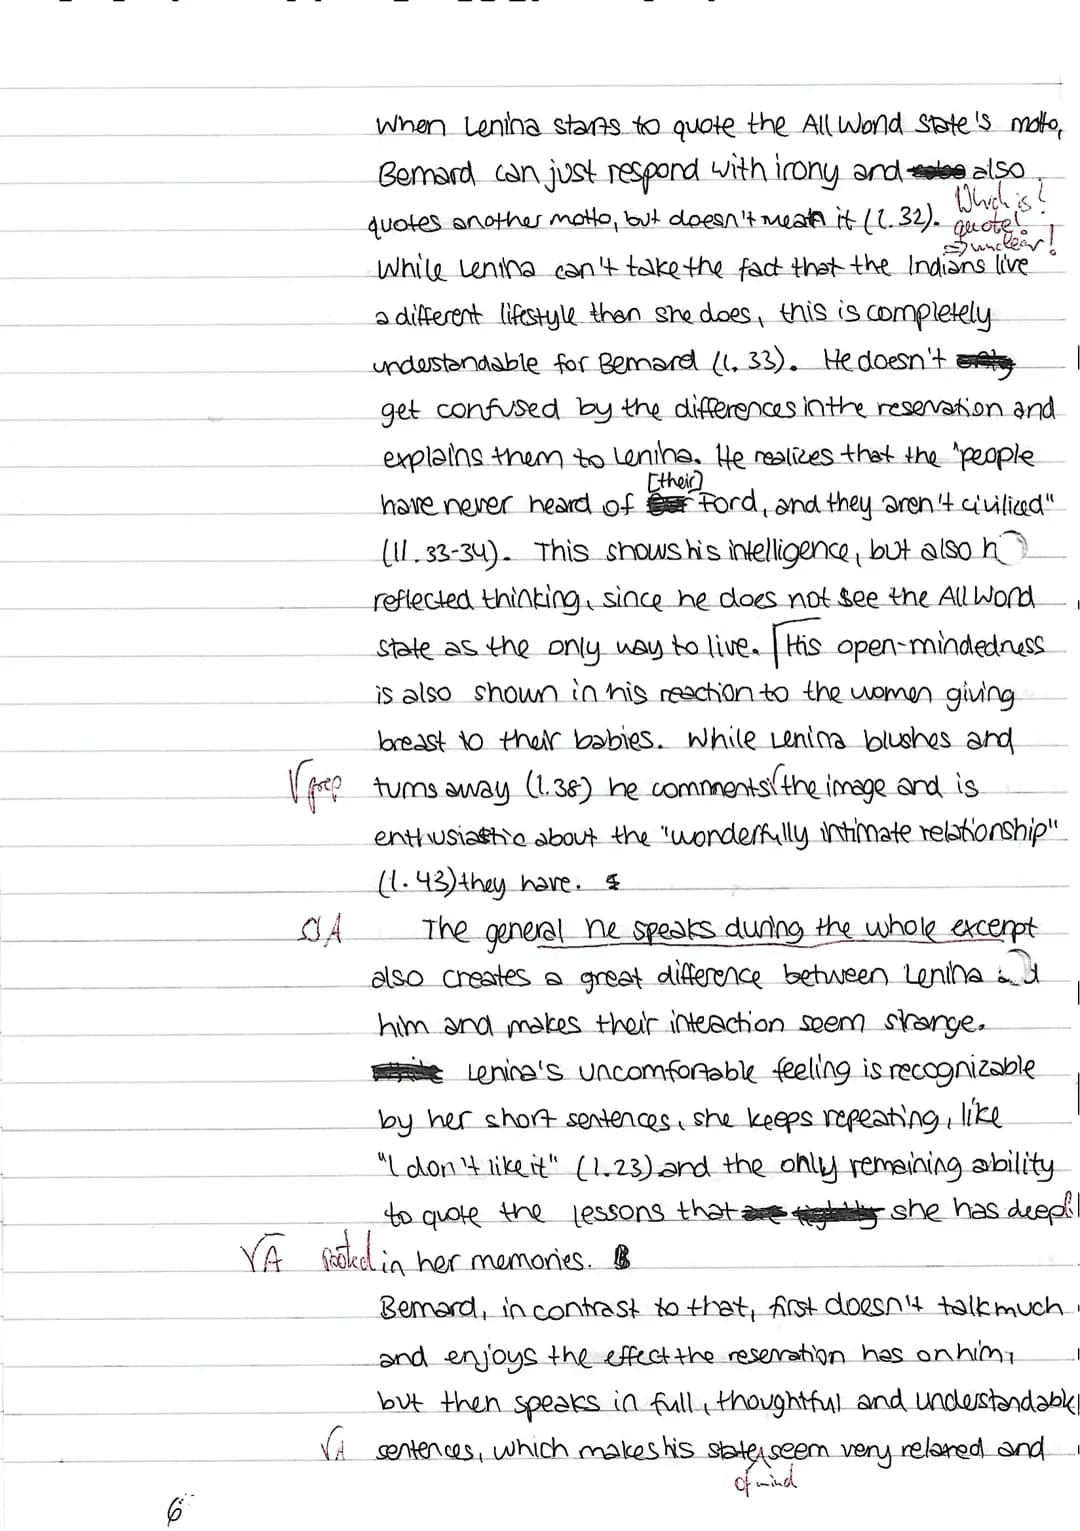 When Lenina starts to quote the All Word State's motto,
Bernard can just respond with irony and also
quotes another motto, but doesn't mean it (l. 32). Which is?
quote!
=> unclear!
While Lenina can't take the fact that the Indians live
a different lifestyle than she does, this is completely
understandable for Bernard (l. 33). He doesn't
get confused by the differences in the reservation and
explains them to Lenina. He realizes that the "people
[their]
have never heard of Ford, and they aren't civilized"
(ll. 33-34). This shows his intelligence, but also h
reflected thinking, since he does not see the All Word
State as the only way to live. His open-mindedness
is also shown in his reaction to the women giving
breast to their babies. While Lenina blushes and
√ prep turns away (l. 38) he comments √ the image and is
enthusiastic about the "wonderfully intimate relationship"
(l. 43) they have.
A The general he speaks during the whole excerpt
also creates a great difference between Lenina and
him and makes their interaction seem strange.
Lenina's uncomfortable feeling is recognizable
by her short sentences, she keeps repeating, like
"I don't like it" (l. 23) and the only remaining ability
to quote the lessons that she has deepl
√A rooted in her memories.
Bernard, in contrast to that, first doesn't talk much
and enjoys the effect the reservation has on him,
but then speaks in full, thoughtful and understandable
√A sentences, which makes his state seem very relaxed and
of mind
6